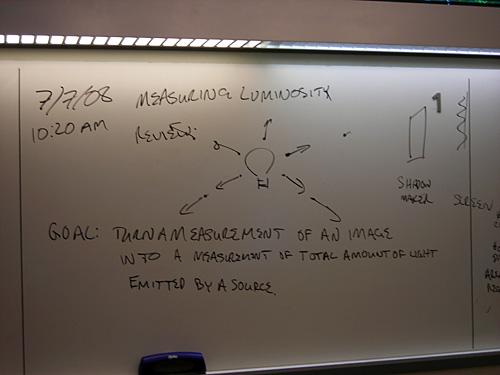 7/7/08 MEASURING LUMINOSITY
10:20 AM REVIEW:
1
SHADOW
MAKER
SCREEN
GOAL: TURN A MEASUREMENT OF AN IMAGE
INTO A MEASUREMENT OF TOTAL AMOUNT OF LIGHT
EMITTED BY A SOURCE.